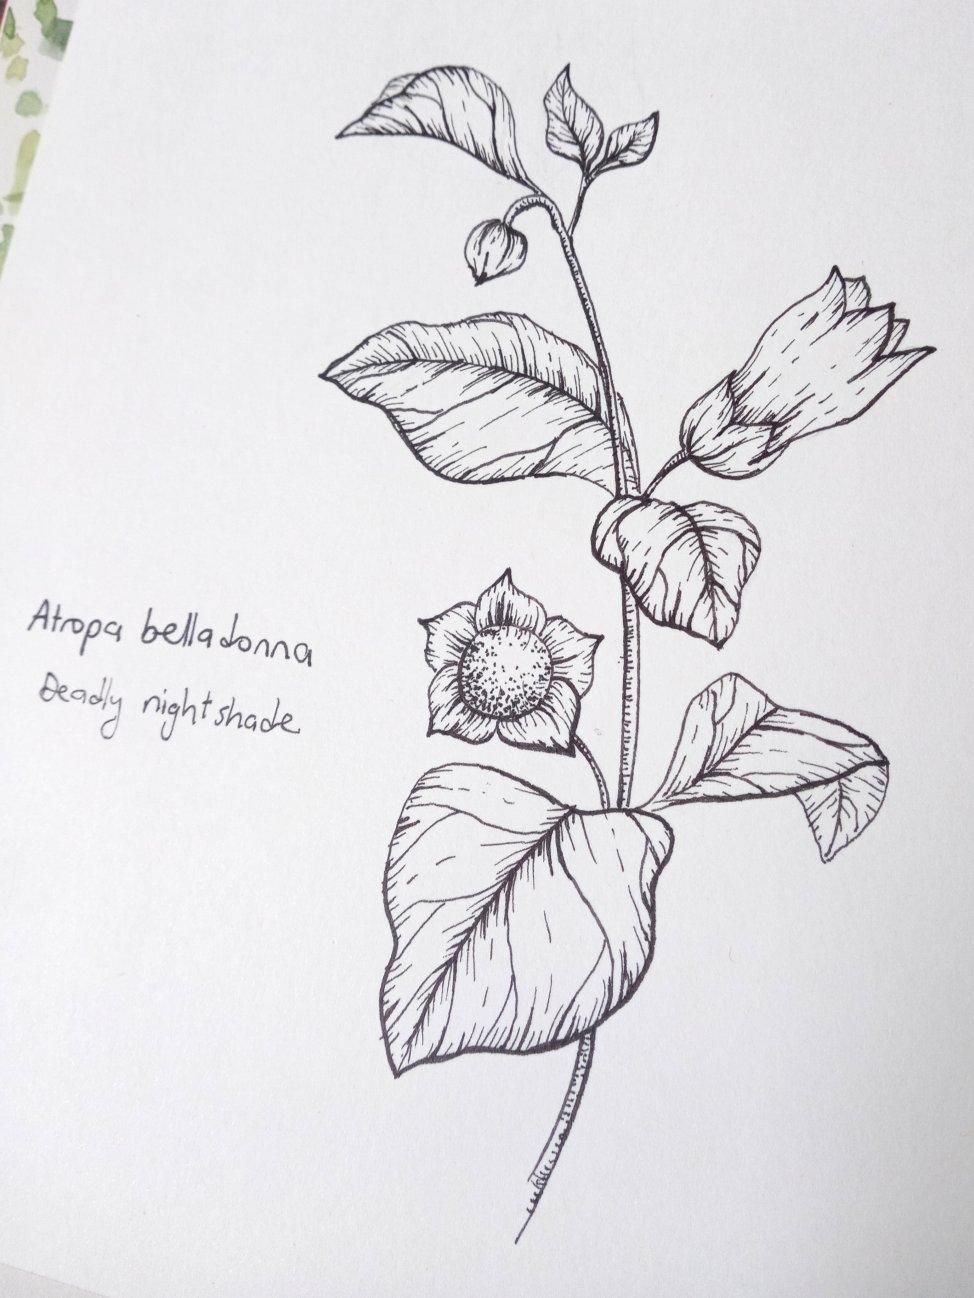 Atropa belladonna
Deadly nightshade